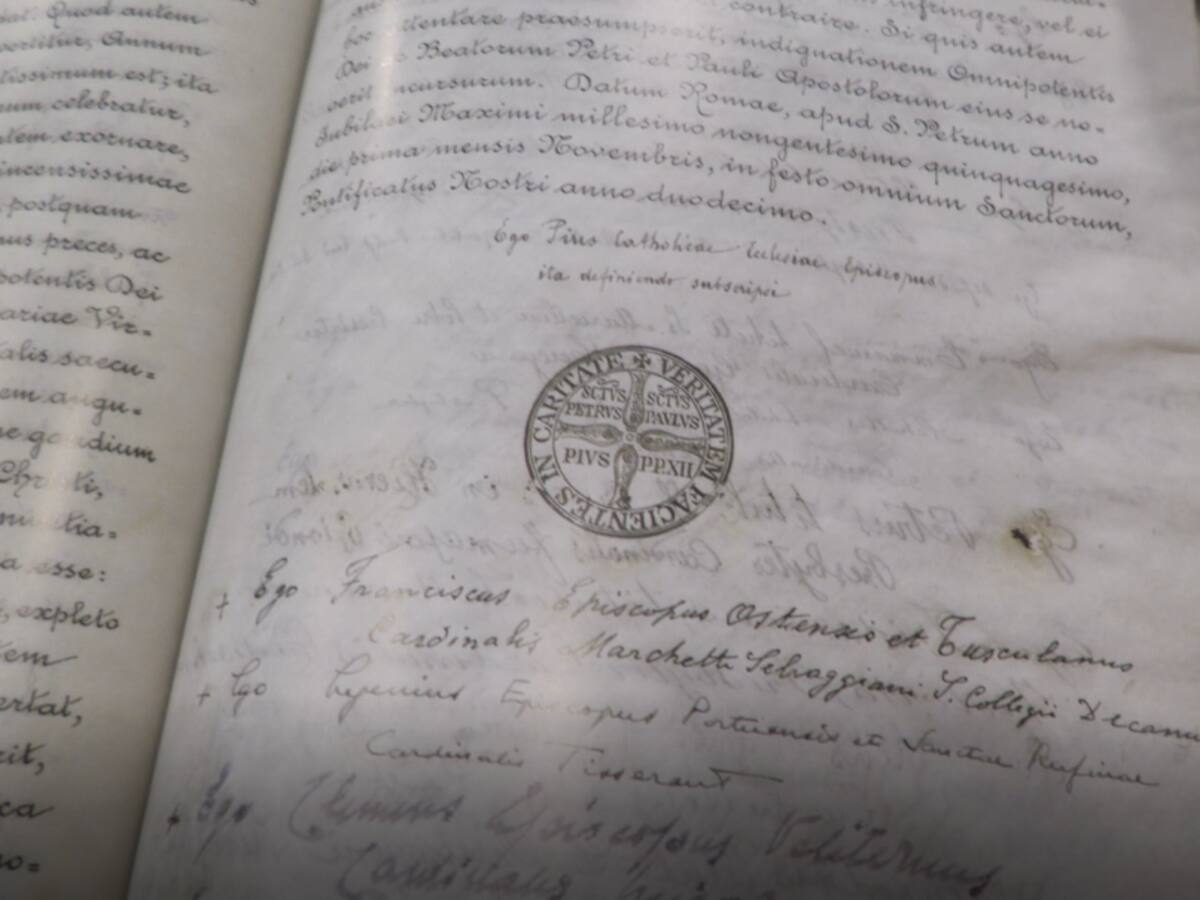 Quod autem
vertitur, Annum
tissimum est; ita
num celebratur,
autem exornare,
incensissimae
postquam
mus preces, ac
potentis Dei
ariae Vir-
talis saecu-
em augu-
ne gaudium
Christi,
a esse:
expleto
tat,
rit,
infringere, vel ei
contraire. Si quis autem
hoc attentare praesumpserit, indignationem Omnipotentis
Dei ac Beatorum Petri et Pauli Apostolorum eius se no-
verit incursurum. Datum Romae, apud S. Petrum anno
Jubilaei Maximi millesimo nongentesimo quinquagesimo,
die prima mensis Novembris, in festo omnium Sanctorum,
Pontificatus Nostri anno duodecimo.
Ego Pius Catholicae Ecclesiae Episcopus
ita definiendo subscripsi
IN CARITATE ✠ VERITATEM FACIENTES
SCTVS SCTVS
PETRVS PAVLVS
PIVS PP.XII
+ Ego Franciscus Episcopus Ostiensis et Tusculanus
Cardinalis Marchetti Selvaggiani S. Collegii Decanus
+ Ego Eugenius Episcopus Portuensis et Sanctae Rufinae
Cardinalis Tisserant
+ Ego Clemens Episcopus Veliternus
Cardinalis